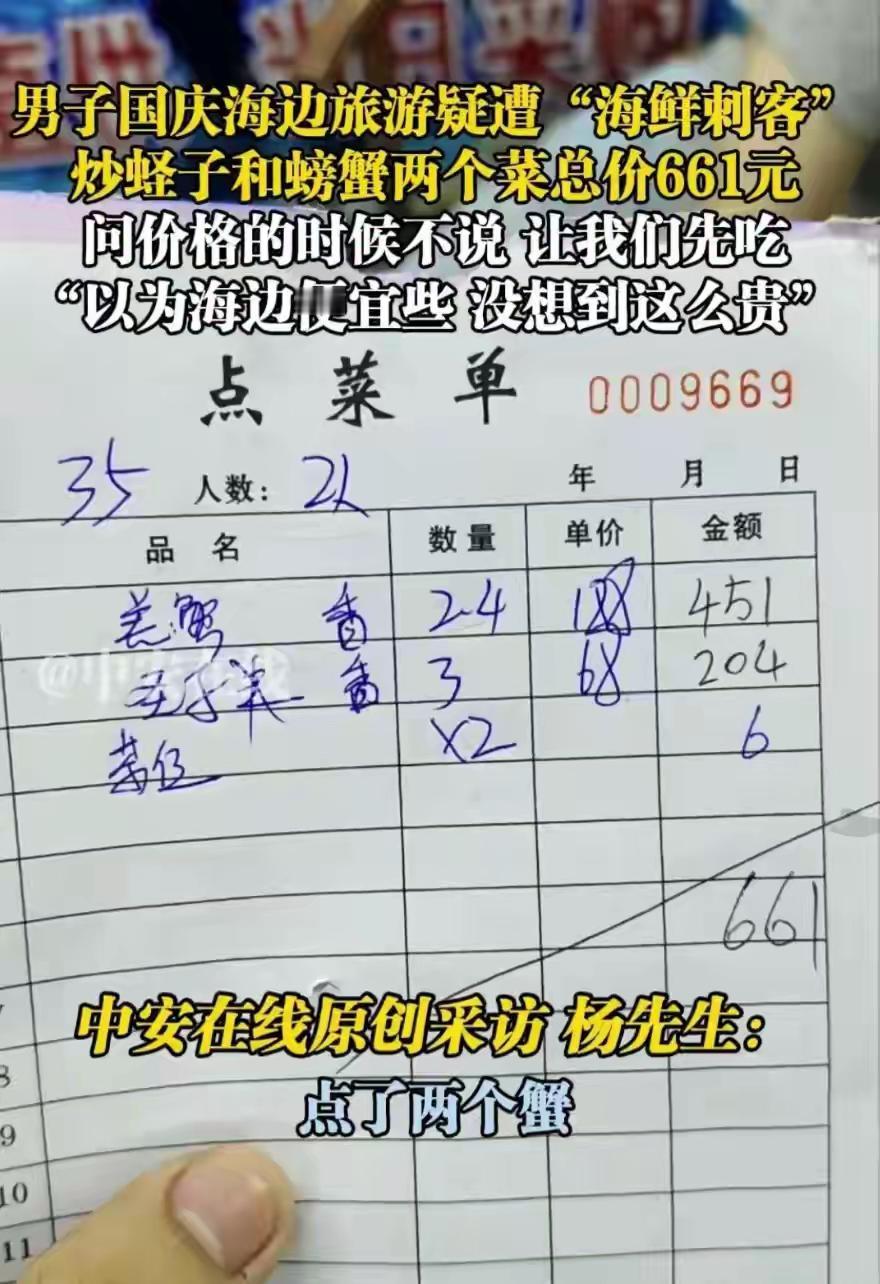 男子国庆海边旅游疑遭“海鲜刺客”
炒蛏子和螃蟹两个菜总价661元
问价格的时候不说 让我们先吃
“以为海边便宜些 没想到这么贵”
点菜单 0009669
35 人数: 2人 年 月 日
品名 数量 单价 金额
羌蟹 2.4 188 451
3 68 204
茶位 X2 6
661
@中安在线
中安在线原创采访 杨先生：
点了两个蟹
8
9
10
11